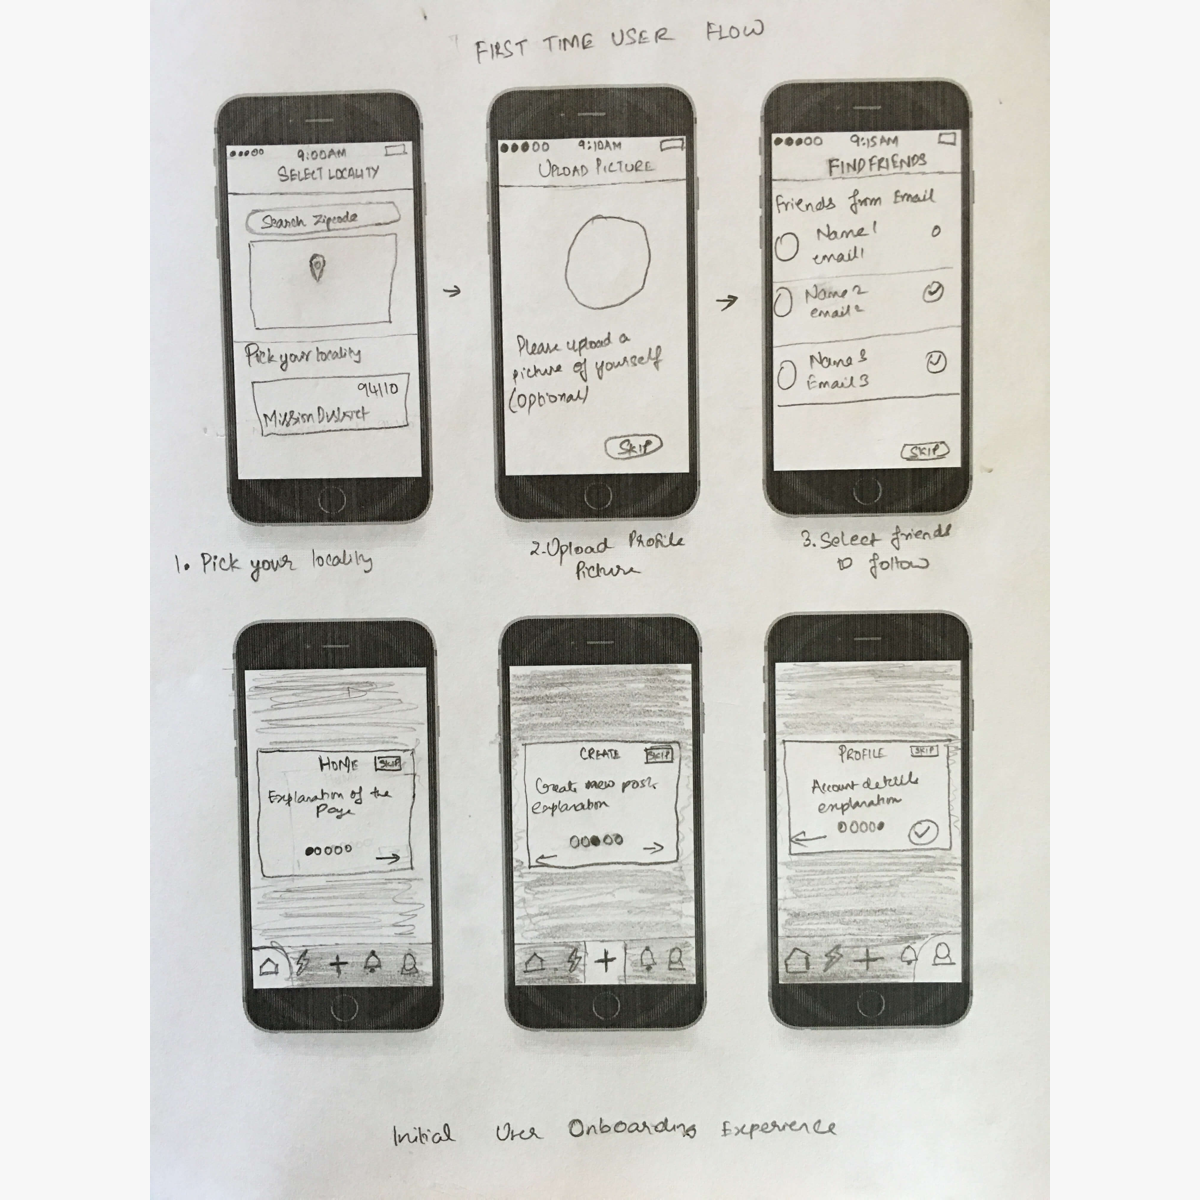 FIRST TIME USER FLOW
9:00AM
SELECT LOCALITY
Search Zipcode
Pick your locality
94110
Mission District
1. Pick your locality
9:10AM
UPLOAD PICTURE
Please upload a
picture of yourself
(optional)
SKIP
2. Upload Profile
Picture
9:15AM
FIND FRIENDS
Friends from Email
Name1
email1
Name2
email2
Name3
Email3
SKIP
3. Select friends
to follow
HOME SKIP
Explanation of the
Page
CREATE SKIP
Create new post
explanation
PROFILE SKIP
Account details
explanation
Initial User Onboarding Experience